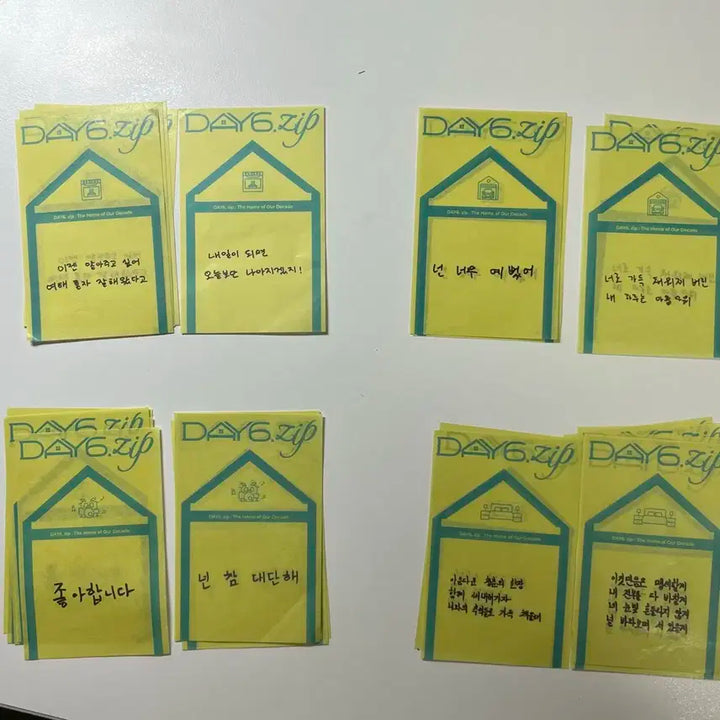 DAY6.zip
DAY6. zip : The Home of Our Decade
이젠 안아주고 싶어
여태 혼자 잘해왔다고
DAY6.zip
DAY6. zip : The Home of Our Decade
내일이 되면
오늘보단 나아지겠지!
DAY6.zip
DAY6. zip : The Home of Our Decade
넌 너무 예뻤어
DAY6.zip
DAY6. zip : The Home of Our Decade
너로 가득 채워져 버린
내 마음 따위
DAY6.zip
DAY6.zip
DAY6. zip : The Home of Our Decade
좋아합니다
DAY6.zip
DAY6. zip : The Home of Our Decade
넌 참 대단해
DAY6.zip
DAY6. zip : The Home of Our Decade
아름다운 청춘의 한 장
함께 써내려가자
너와의 추억들로 가득 채울래
DAY6.zip
DAY6. zip : The Home of Our Decade
이것만큼은 맹세할게
내 전부를 다 바칠게
네 눈빛 흔들리지 않게
널 바라보며 서 있을게